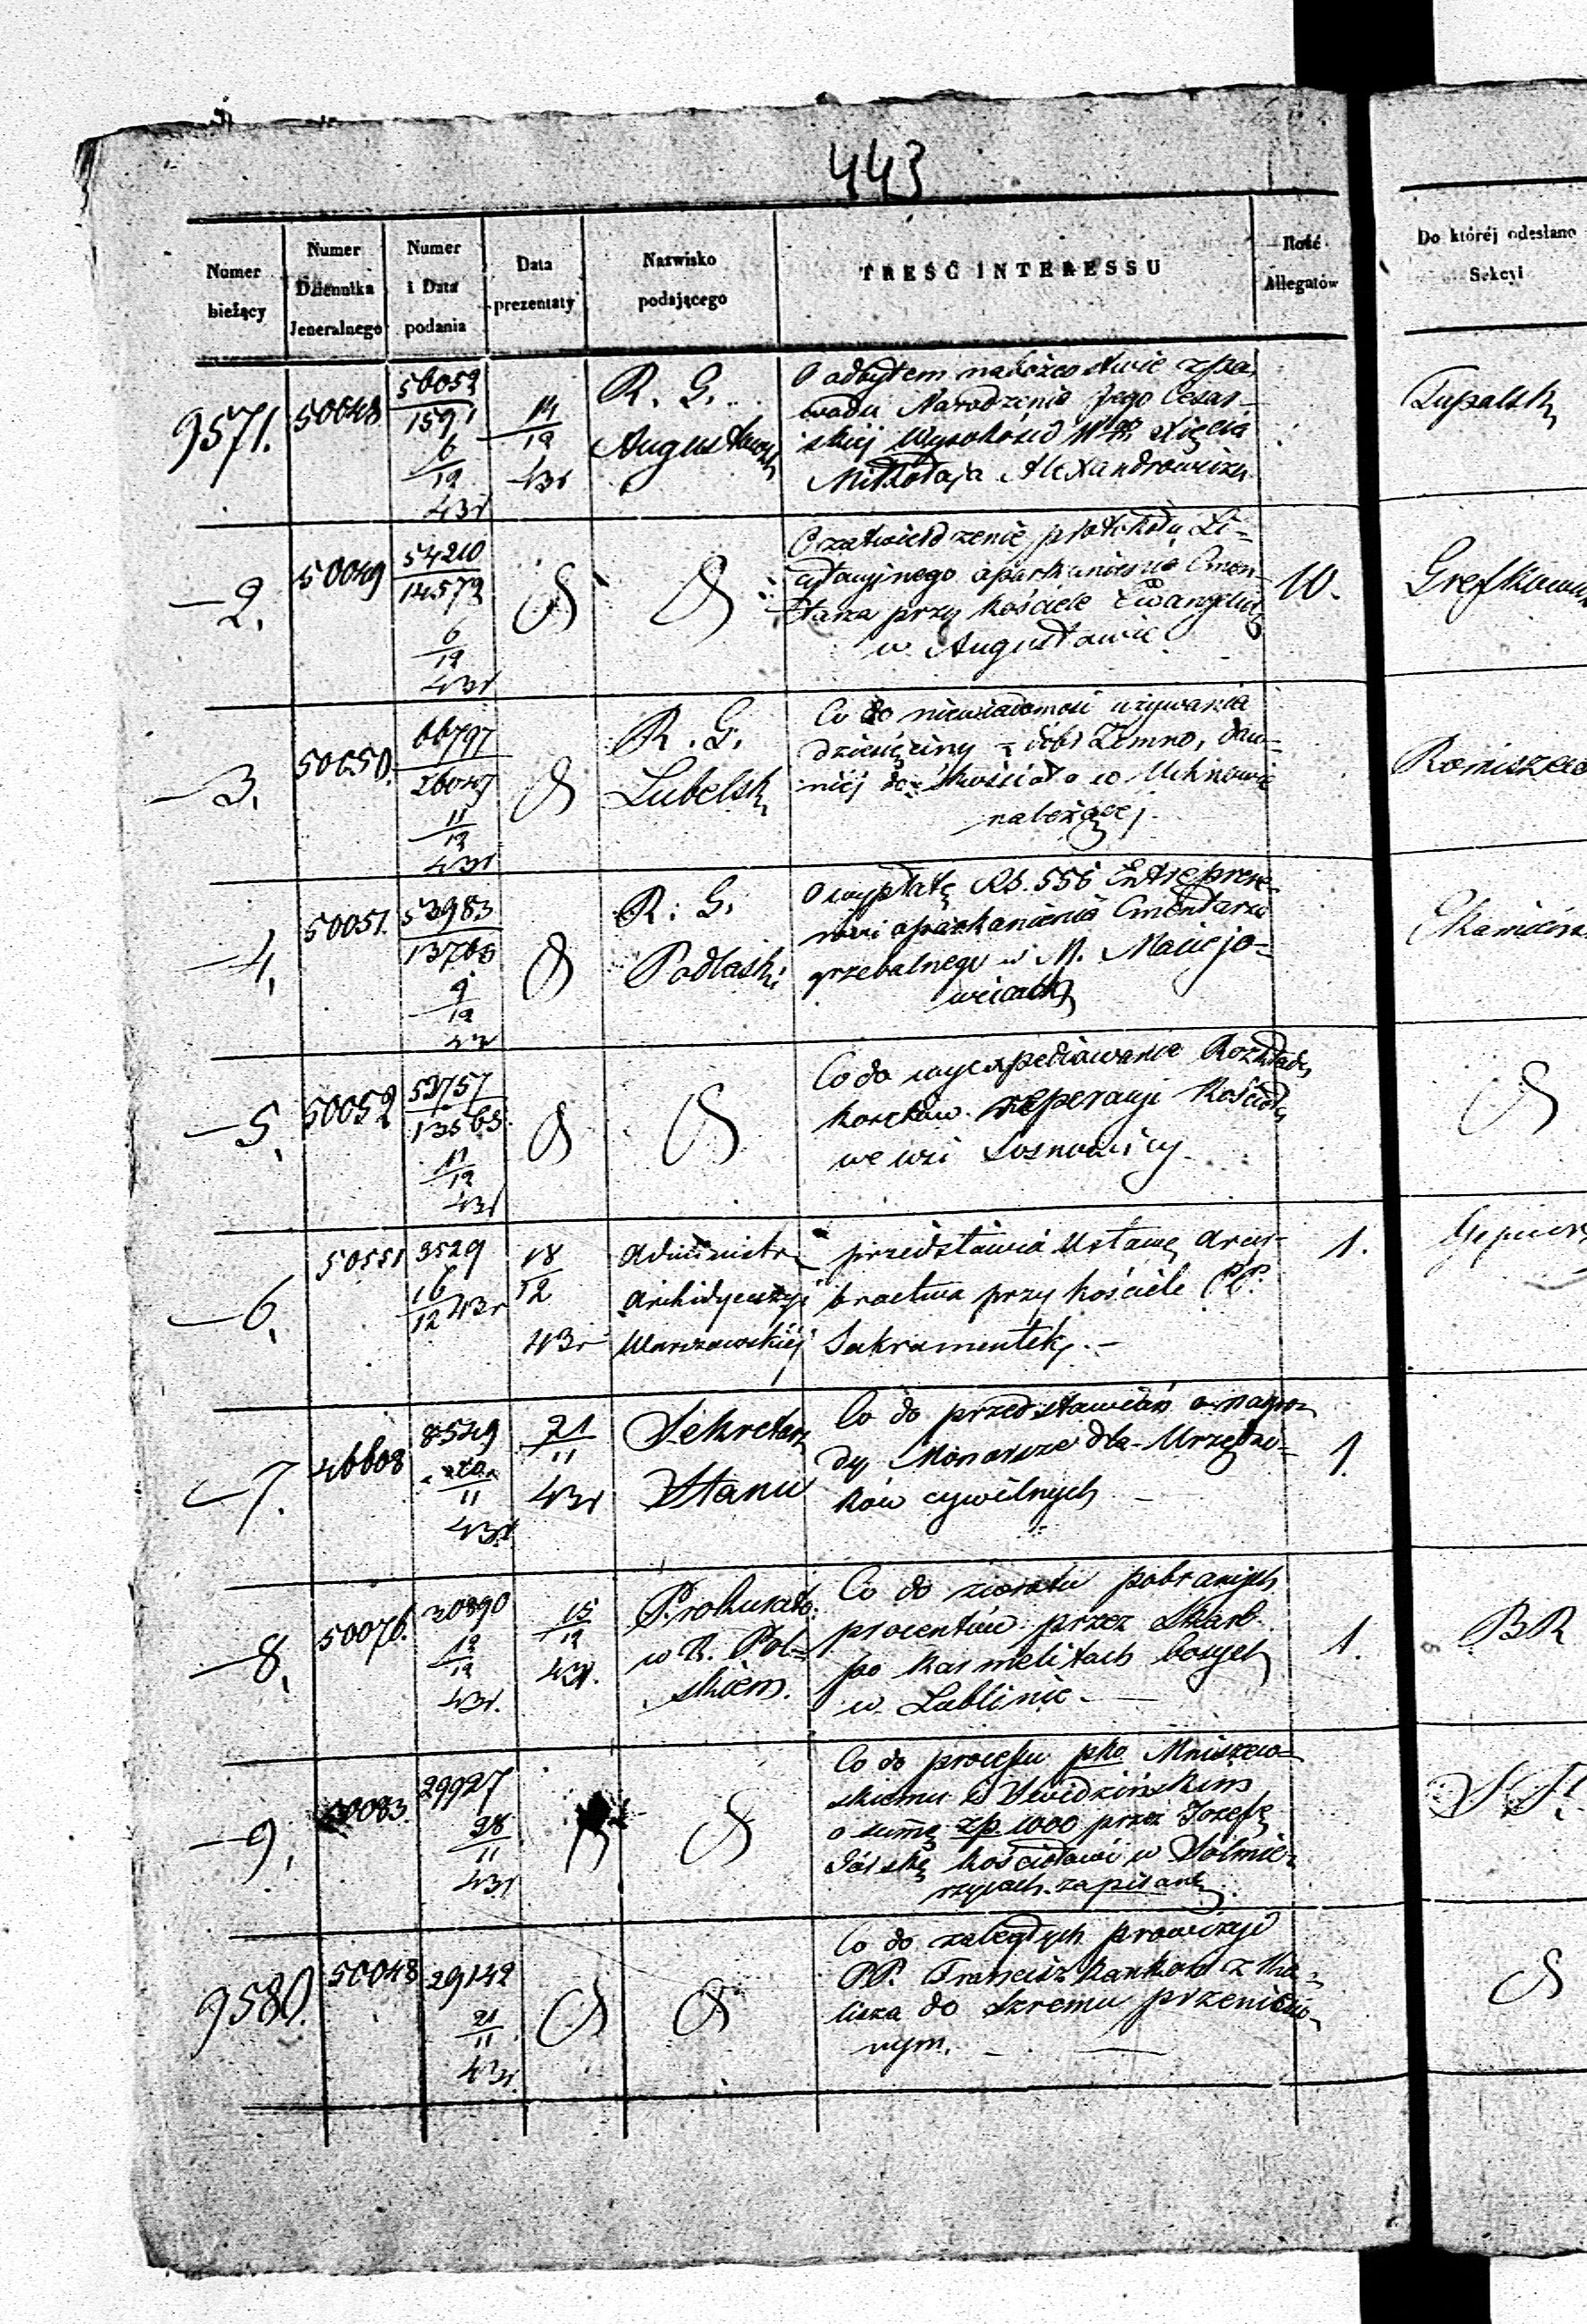 443
Numer bieżący
Numer Dziennika Jeneralnego
Numer i Data podania
Data prezentaty
Nazwisko podającego
TREŚĆ INTERESSU
Ilość Allegatów
Do któréj odesłano Sekcyi
9571. 50048 56052 1591 6/12 43r 14/12 43r R. G. Augustowsk
O odbytem nabożeństwie z po
wodu Narodzenia Jego Cesar-
skiej Wysokości Wgo Xięcia
Mikołaja Alexandrowicza
—2. 50049 54210 14572 6/12 43r
O zatwierdzenie protokołu Li-
cytacyjnego oparkanienia Cmen-
tarza przy Kościele Ewangelic
w Augustowie
10.
—3. 50050. 66797 26049 11/12 43r R. G. Lubelski
Co do niewiadomości używania
dziesięciny z dóbr Żemno, daw-
niéj do Kościoła w Uchnowie
należącej.
—4. 50051. 53983 13705 9/12 43r R. G. Podlaski
O wypłatę Rs. 556 Entreprene-
rowi oparkanienia Cmentarza
grzebalnego w M. Maciejo-
wicach
—5. 50052 53757 13565 11/12 43r
Co do wyexpediowania Rozkładu
kosztów reperacyi Kościoła
we wsi Sosnowicy.
—6. 50551 3529 16/12 43r 18/12 43r Administr. Archidyecezyi Warszawskiéj
przedstawia Ustawę Arcy-
bractwa przy Kościele PP.
Sakramentek.—
1.
—7. 46608 8549 20/11 43r 21/11 43r Sekretarz Stanu
Co do przedstawień o nagro-
dy Monarsze dla Urzędni-
ków cywilnych
1.
—8. 50076. 30890 12/12 43r. 15/12 43r. Prokurator w K. Pol- skiem.
Co do zwrotu pobranych
procentów przez Skarb
po Karmelitach bosych
w Lublinie.—
1. BR
—9. 50083. 29927 28/11 43r
Co do processu pko Mniszew-
skiemu i Świdzińskim
o summę zp. 1000 przez Jozefę
Górską Kościołowi w Sólmie-
rzycach zapisaną.
9580. 50048 29142 21/11 43r.
Co do zaległych prowizyi
PP. Franciszkankom z Ka-
lisza do Szremu przeniesio-
nym.